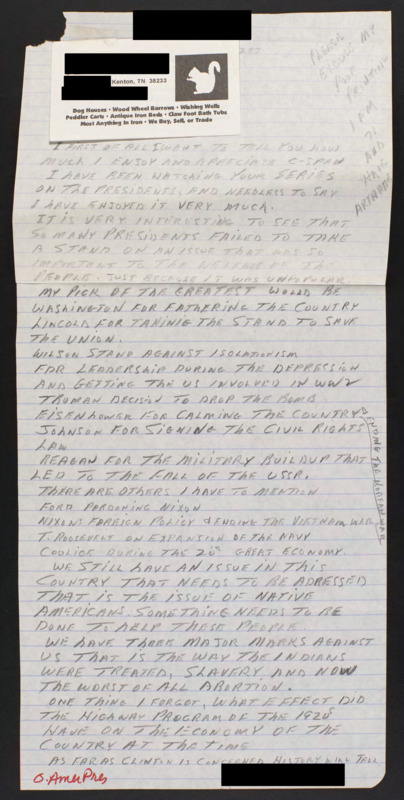 Kenton, TN 38233
Dog Houses • Wood Wheel Barrows • Wishing Wells
Peddler Carts • Antique Iron Beds • Claw Foot Bath Tubs
Most Anything In Iron • We Buy, Sell, or Trade
PLEASE
EXCUSE MY
POOR
PRINTING
I AM
71
AND
HAVE
FIRST OF ALL I WANT TO TELL YOU HOW
MUCH I ENJOY AND APRECIATE C-SPAN
I HAVE BEEN WATCHING YOUR SERIES
ON THE PRESIDENTS, AND NEEDLESS TO SAY
I HAVE ENJOYED IT VERY MUCH.
IT IS VERY INTERESTING TO SEE THAT
SO MANY PRESIDENTS FAILED TO TAKE
A STAND ON AN ISSUE THAT WAS SO
IMPORTANT TO THE WELFARE OF THE
PEOPLE. JUST BECAUSE IT WAS UNPOPULAR
MY PICK OF THE GREATEST WOULD BE
WASHINGTON FOR FATHERING THE COUNTRY
LINCOLN FOR TAKING THE STAND TO SAVE
THE UNION.
WILSON STAND AGAINST ISOLATIONISM
FDR LEADERSHIP DURING THE DEPRESSION
AND GETTING THE US INVOLVED IN WW2
TRUMAN DECISION TO DROP THE BOMB
EISENHOWER FOR CALMING THE COUNTRY
& ENDING THE KOREAN WAR
JOHNSON FOR SIGNING THE CIVIL RIGHTS
LAW
REAGAN FOR THE MILITARY BUILDUP THAT
LED TO THE FALL OF THE USSR.
THERE ARE OTHERS I HAVE TO MENTION
FORD PARDONING NIXON
NIXONS FOREIGN POLICY & ENDING THE VIETNAM WAR
T. ROOSEVELT ON EXPANSION OF THE NAVY
COOLIGE DURING THE 20s GREAT ECONOMY.
WE STILL HAVE AN ISSUE IN THIS
COUNTRY THAT NEEDS TO BE ADRESSED
THAT, IS THE ISSUE OF NATIVE
AMERICANS. SOMETHING NEEDS TO BE
DONE TO HELP THESE PEOPLE.
WE HAVE THREE MAJOR MARKS AGAINST
US THAT IS THE WAY THE INDIANS
WERE TREATED, SLAVERY AND NOW
THE WORST OF ALL ABORTION.
ONE THING I FORGOT, WHAT EFFECT DID
THE HIGHWAY PROGRAM OF THE 1920s
HAVE ON THE ECONOMY OF THE
COUNTRY AT THE TIME
AS FAR AS CLINTON IS CONCERNED HISTORY WILL TELL
O. AmerPres